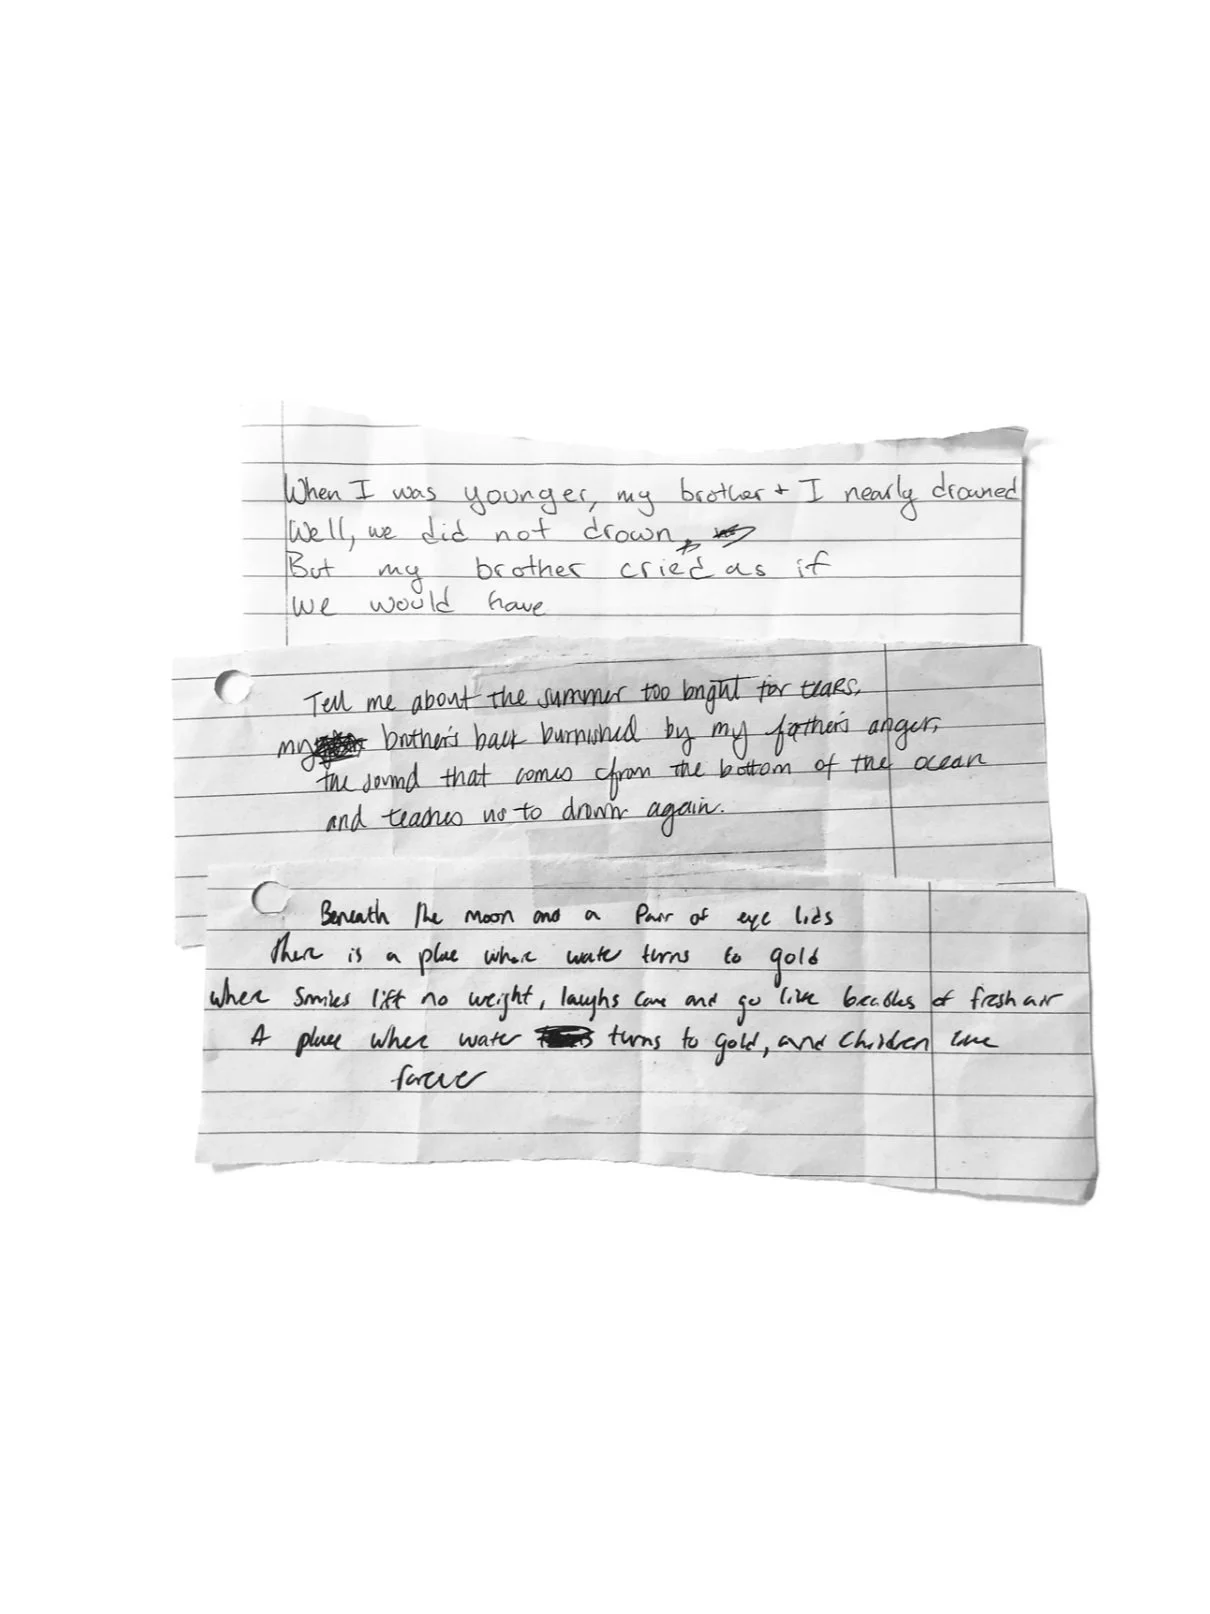 When I was younger, my brother + I nearly drowned
Well, we did not drown,
But my brother cried as if
we would have
Tell me about the summer too bright for tears,
my brother's back burnished by my father's anger,
the sound that comes from the bottom of the ocean
and teaches us to drown again.
Beneath the moon and a Pair of eye lids
there is a place where water turns to gold
where smiles lift no weight, laughs come and go like breaths of fresh air
A place where water turns to gold, and children live
forever